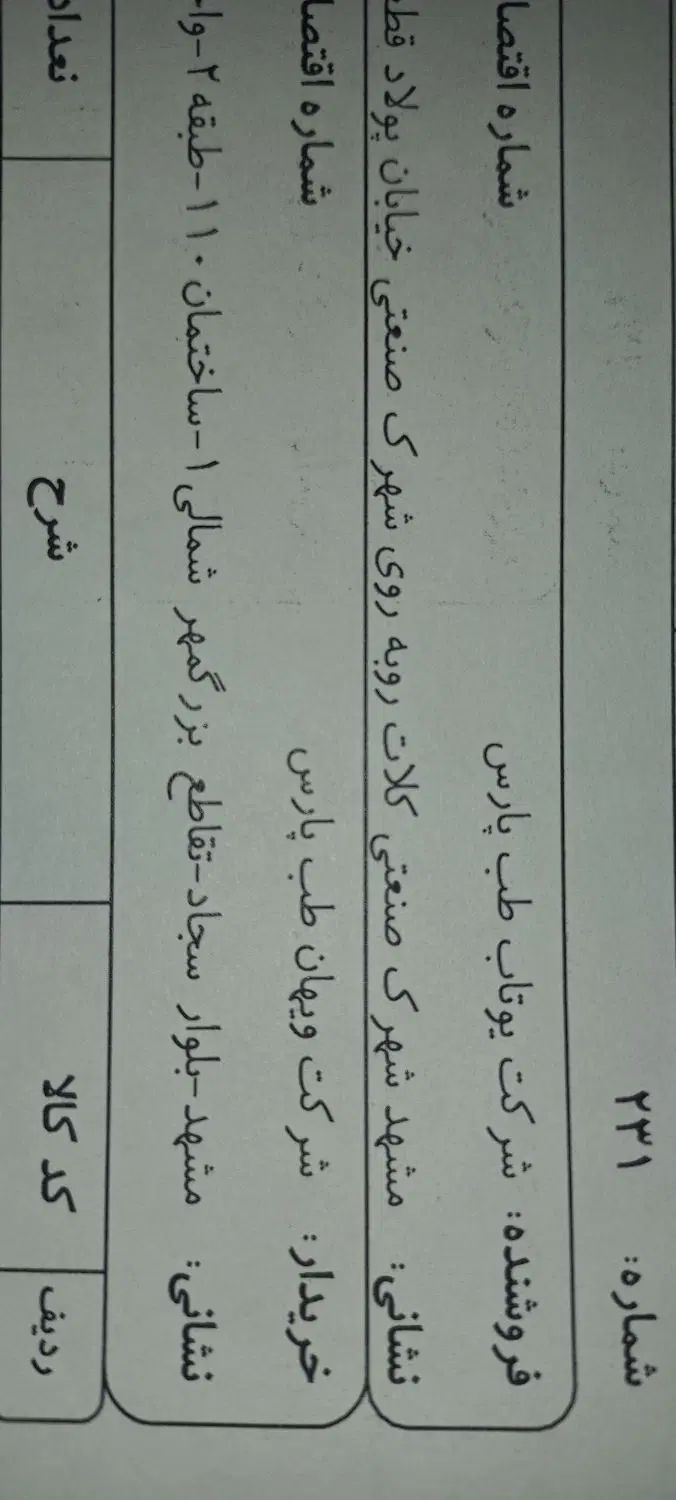 شماره: ۲۳۱
فروشنده: شرکت یوتاب طب پارس شماره اقتصا
نشانی: مشهد شهرک صنعتی کلات روبه روی شهرک صنعتی خیابان پولاد قط
خریدار: شرکت ویهان طب پارس شماره اقتصا
نشانی: مشهد-بلوار سجاد-تقاطع بزرگمهر شمالی ۱-ساختمان ۱۱۰-طبقه ۲-وا
ردیف کد کالا شرح تعداد